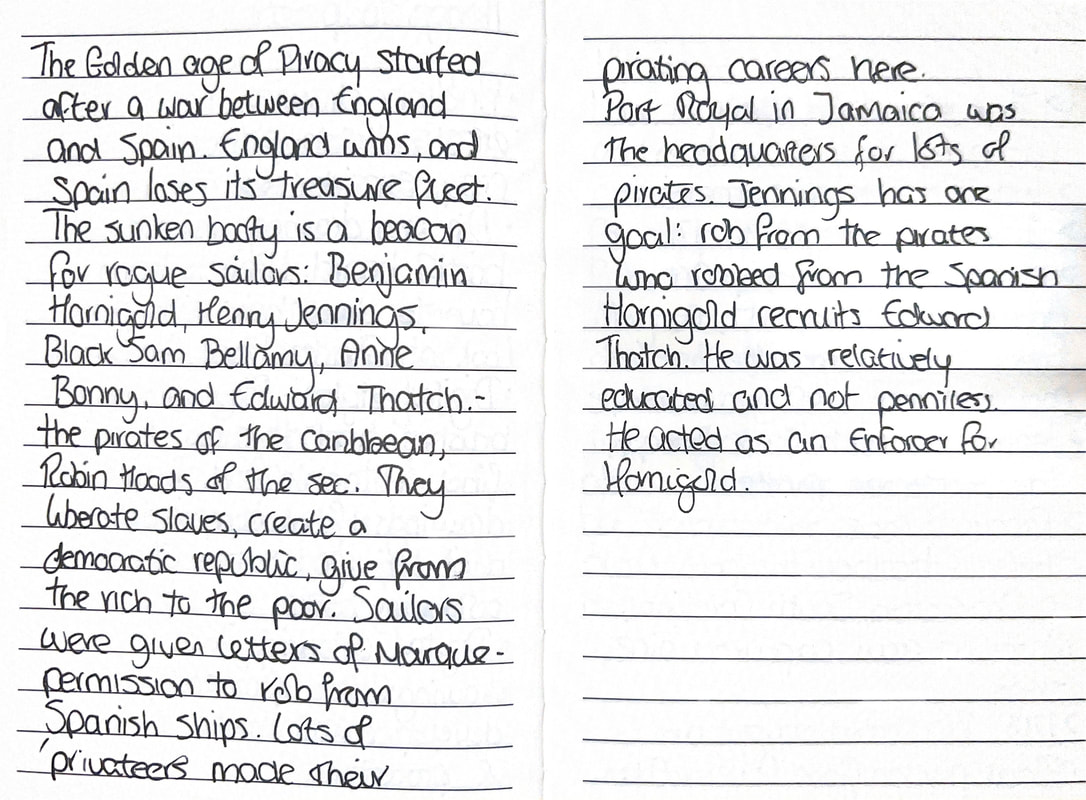 The Golden age of Piracy started
after a war between England
and Spain. England wins, and
Spain loses its treasure fleet.
The sunken booty is a beacon
for rogue sailors: Benjamin
Hornigold, Henry Jennings,
Black Sam Bellamy, Anne
Bonny, and Edward Thatch.-
the pirates of the caribbean,
Robin Hoods of the sea. They
liberate slaves, create a
democratic republic, give from
the rich to the poor. Sailors
were given Letters of Marque-
permission to rob from
Spanish ships. Lots of
'privateers made their
pirating careers here.
Port Royal in Jamaica was
the headquarters for lots of
pirates. Jennings has one
goal: rob from the pirates
who robbed from the Spanish
Hornigold recruits Edward
Thatch. He was relatively
educated and not penniless.
He acted as an Enforcer for
Hornigold.